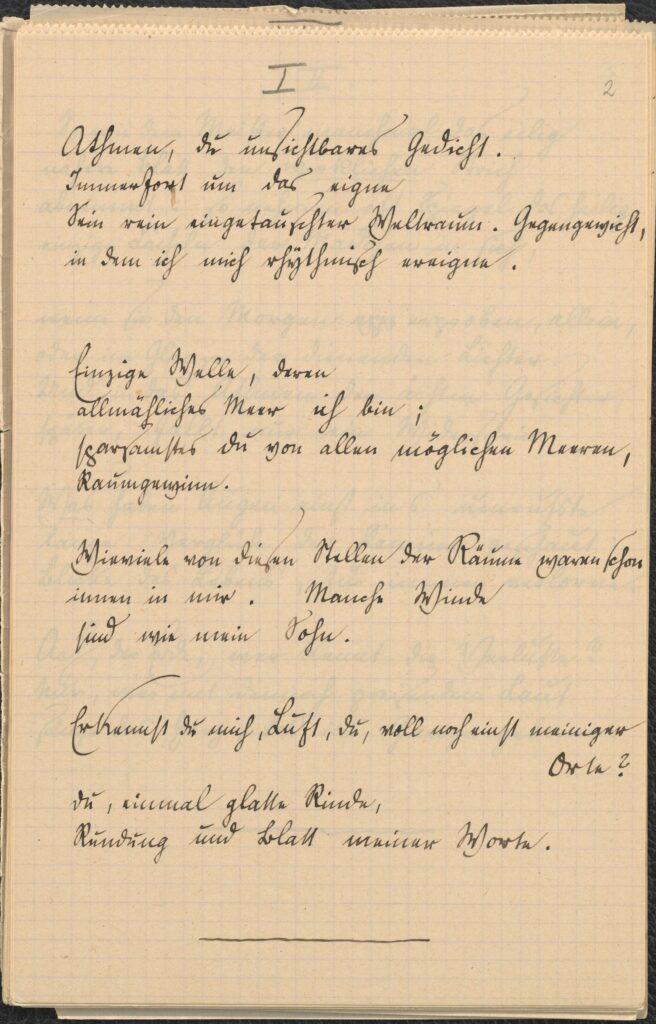 I
2
Athmen, du unsichtbares Gedicht.
Immerfort um das eigne
Sein rein eingetauschter Weltraum. Gegengewicht,
in dem ich mich rhÿthmisch ereigne.
Einzige Welle, deren
allmähliches Meer ich bin;
sparsamstes du von allen möglichen Meeren,
Raumgewinn.
Wieviele von diesen Stellen der Räume waren schon
innen in mir. Manche Winde
sind wie mein Sohn.
Erkennst du mich, Luft, du, voll noch einst meiniger
Orte?
du, einmal glatte Rinde,
Rundung und Blatt meiner Worte.